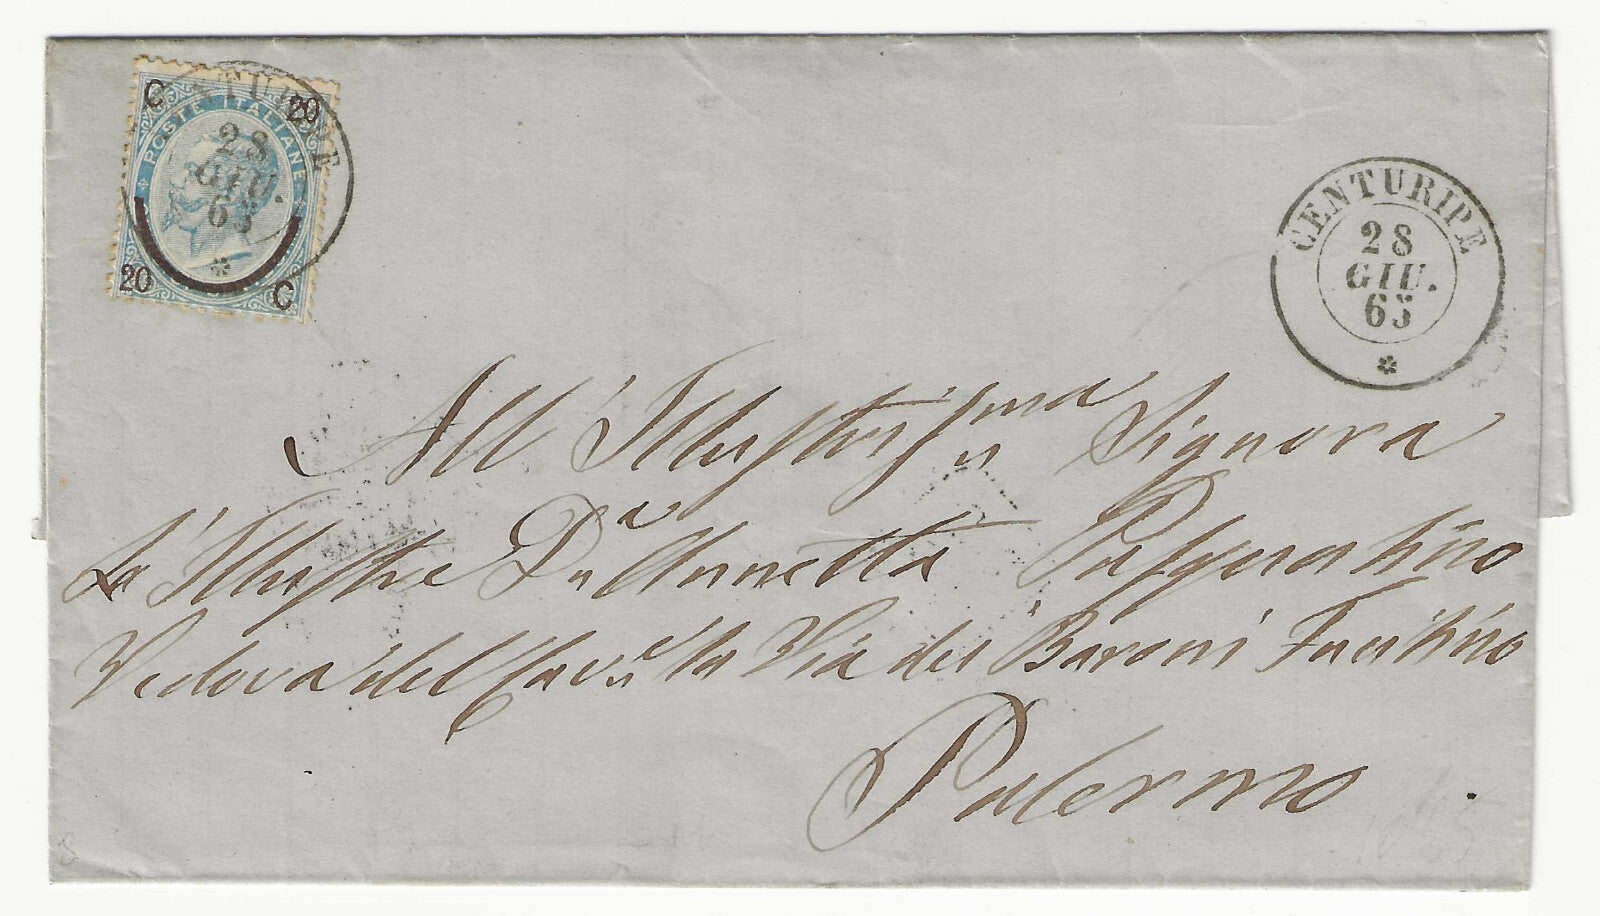 C 20
POSTE ITALIANE
20 C
CENTURIPE
28
GIU.
65
CENTURIPE
28
GIU.
65
All'Illustrissima Signora
La Illustre Da Annetta
Vedova del Via dei Baroni
Palermo